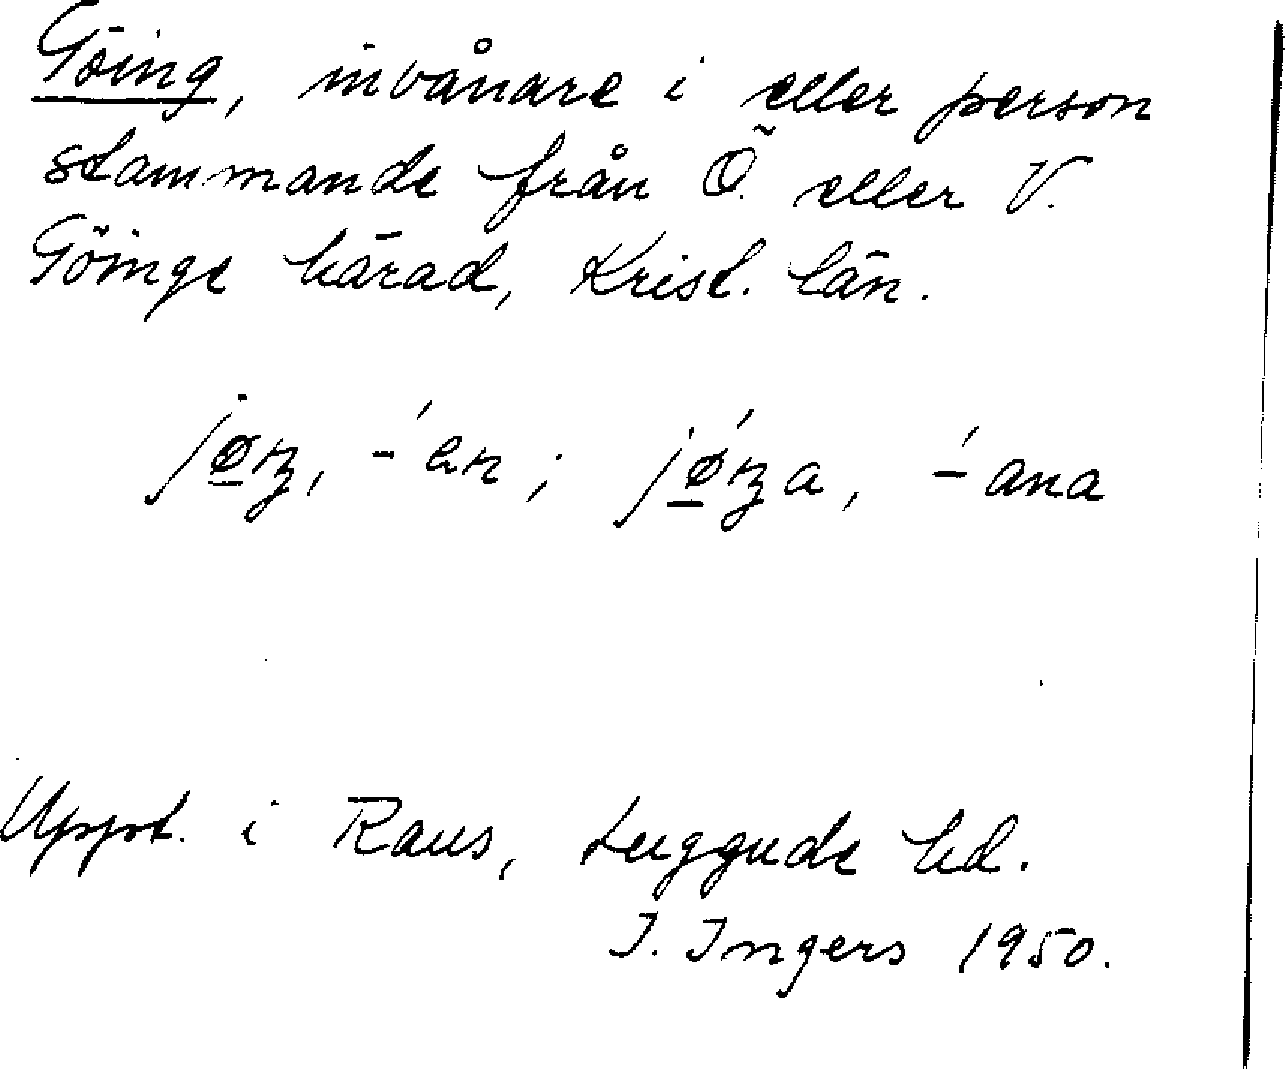 Göing, invånare i eller person
stammande från Ö. eller V.
Göinge härad, Krist. län.
jøŋ, -́en; jǿŋa, -́ana
Uppt. i Raus, Luggude hd.
I. Ingers 1950.